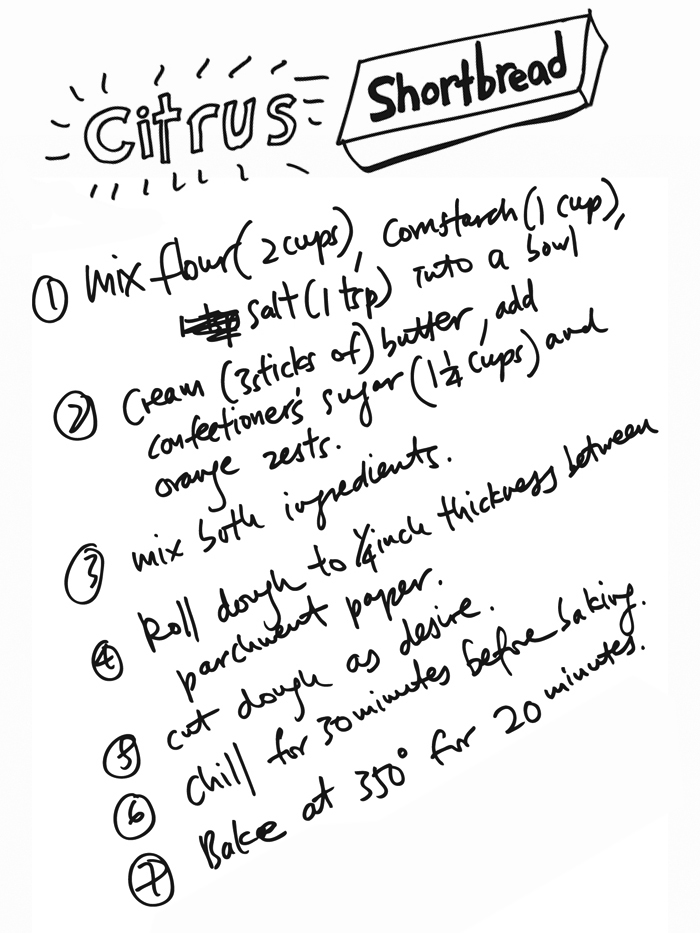 Citrus Shortbread
① mix flour (2 cups), Cornstarch (1 cup),
salt (1 tsp) into a bowl
② Cream (3 sticks of) butter, add
confectioner's sugar (1 1/4 cups) and
orange zests.
③ mix both ingredients.
④ Roll dough to 1/4 inch thickness between
parchment paper.
⑤ cut dough as desire.
⑥ Chill for 30 minutes before baking.
⑦ Bake at 350° for 20 minutes.